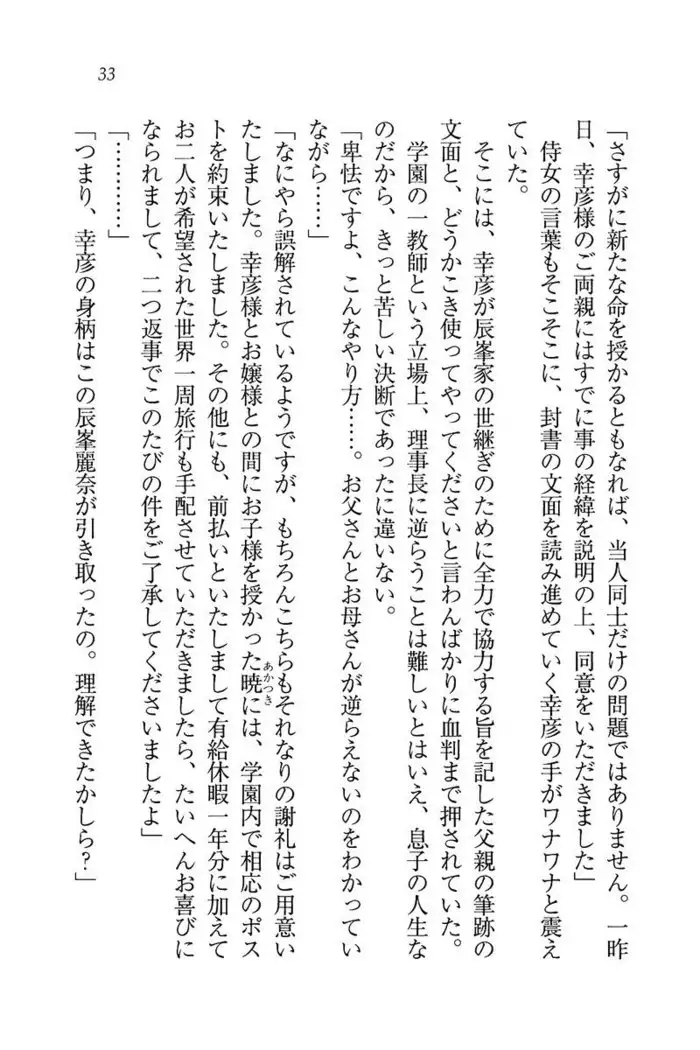 33
「さすがに新たな命を授かるともなれば、当人同士だけの問題ではありません。一昨
日、幸彦様のご両親にはすでに事の経緯を説明の上、同意をいただきました」
侍女の言葉もそこそこに、封書の文面を読み進めていく幸彦の手がワナワナと震え
ていた。
そこには、幸彦が辰峯家の世継ぎのために全力で協力する旨を記した父親の筆跡の
文面と、どうかこき使ってやってくださいと言わんばかりに血判まで押されていた。
学園の一教師という立場上、理事長に逆らうことは難しいとはいえ、息子の人生な
のだから、きっと苦しい決断であったに違いない。
「卑怯ですよ、こんなやり方……。お父さんとお母さんが逆らえないのをわかってい
ながら……」
「なにやら誤解されているようですが、もちろんこちらもそれなりの謝礼はご用意い
たしました。幸彦様とお嬢様との間にお子様を授かった暁あかつきには、学園内で相応のポス
トを約束いたしました。その他にも、前払いといたしまして有給休暇一年分に加えて
お二人が希望された世界一周旅行も手配させていただきましたら、たいへんお喜びに
なられまして、二つ返事でこのたびの件をご了承してくださいましたよ」
「…………」
「つまり、幸彦の身柄はこの辰峯麗奈が引き取ったの。理解できたかしら？」